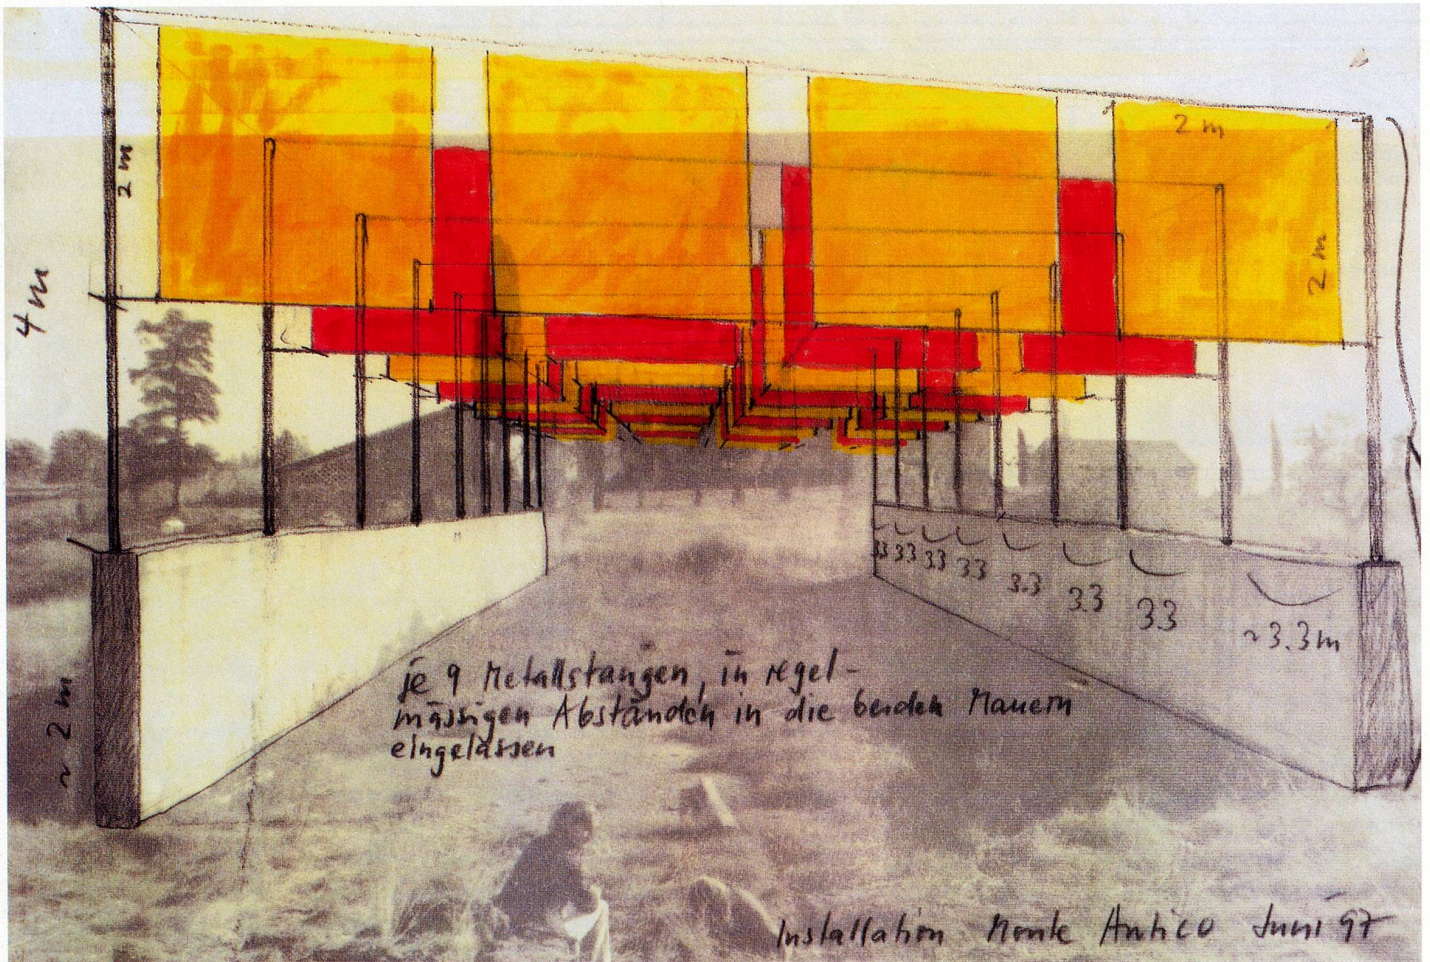 2 m
2 m
4 m
2 m
33 33 33 33 3.3 3.3 33 ~3.3 m
~ 2 m
je 9 Metallstangen, in regel-
mässigen Abständen in die beiden Mauern
eingelassen
Installation Monte Antico Juni 97